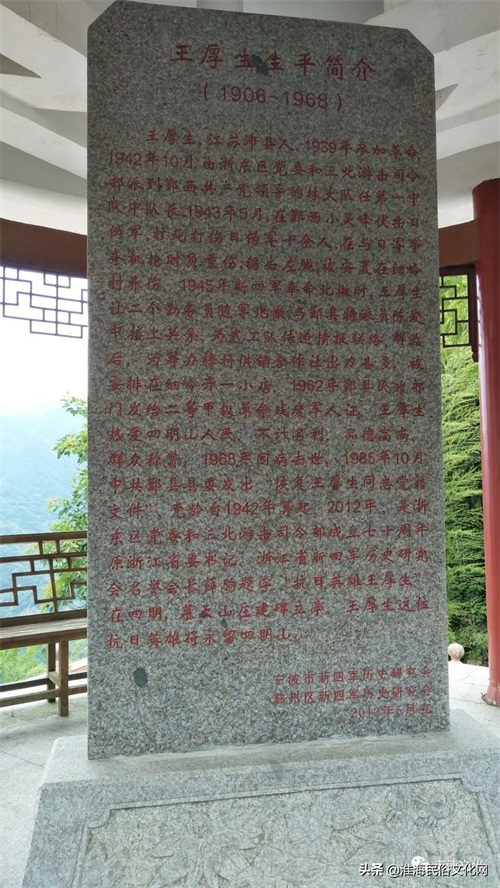 王厚生生平简介
（1906~1968）
王厚生，江苏沛县人，1939年参加革命，
1942年10月，由浙东区党委和三北游击司令
部派到鄞西共产党领导的林大队任第一中
队中队长，1943年5月，在鄞西小灵峰伏击日
伪军，打死打伤日伪军十余人，在与日军争
夺机枪时负重伤，锯去左腿，被安置在细岭
村养伤。1945年新四军奉命北撤时，王厚生
让二个勤务员随军北撤，与鄞县特派员陈爱
中接上关系，为武工队传递情报联络，解放
后，为筹办樟村供销合作社出力甚多，被
安排在细岭开一小店，1962年鄞县民政部
门发给二等甲级革命残废军人证，王厚生
热爱四明山人民，不计名利，品德高尚，
群众称赞，1968年因病去世，1985年10月
中共鄞县县委发出“恢复王厚生同志党籍
文件”，党龄自1942年算起，2012年，是浙
东区党委和三北游击司令部成立七十周年
原浙江省委书记、浙江省新四军历史研究
会名誉会长薛驹题字“抗日英雄王厚生”
在四明，墓天山庄建碑立亭，王厚生这位
抗日英雄将永留四明山。
宁波市新四军历史研究会
鄞州区新四军历史研究会
2012年5月立
头条 @淮海民俗文化网